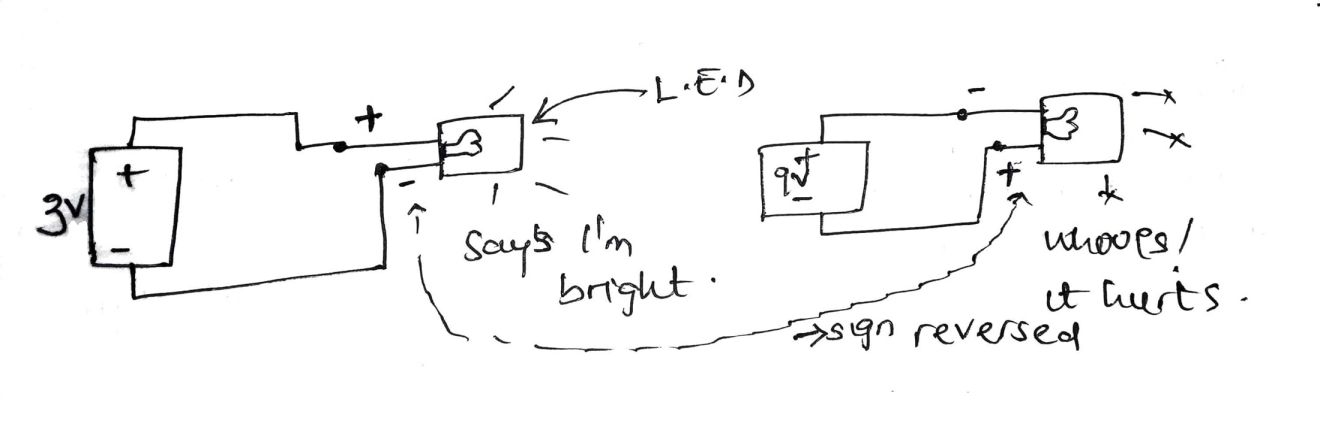 L.E.D
+
-
+
3v
-
say's I'm
bright.
-
9v
+
-
+
whoops!
it hurts.
→sign reversed